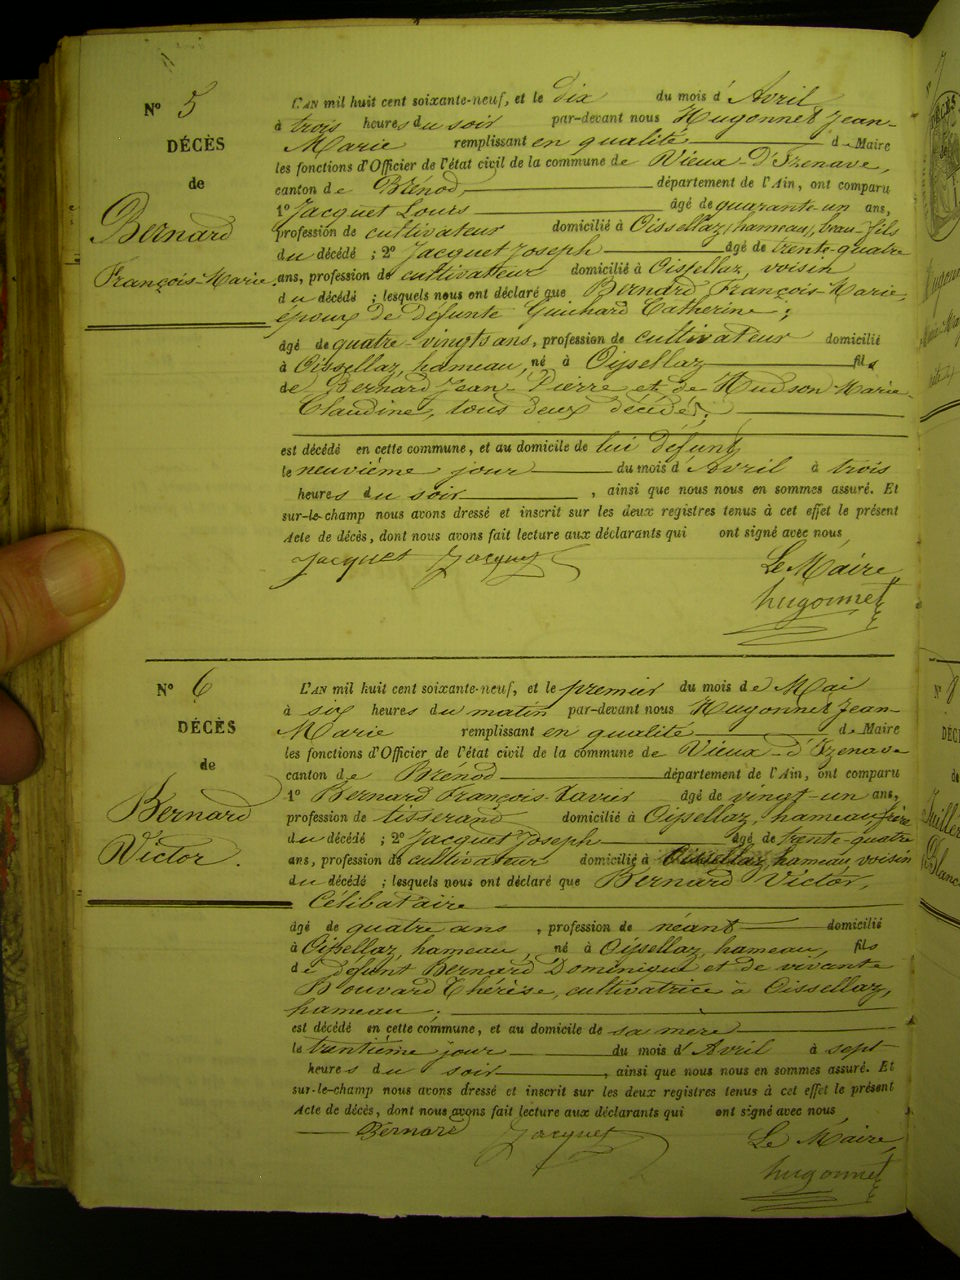 N° 5
DÉCÈS
de
Bernard
François-Marie
L'AN mil huit cent soixante-neuf, et le dix du mois d'Avril
à trois heures du soir par-devant nous Hugonnet Jean-
Marie remplissant en qualité de Maire
les fonctions d'Officier de l'état civil de la commune de Vieux-d'Izenave,
canton de Brénod département de l'Ain, ont comparu
1° Jacquet Louis âgé de quarante-un ans,
profession de cultivateur domicilié à Oissellaz, hameau, beau-fils
du décédé ; 2° Jacquet Joseph âgé de trente-quatre
ans, profession de cultivateur domicilié à Oissellaz, voisin
du décédé ; lesquels nous ont déclaré que Bernard François-Marie,
époux de defunte Guichard Catherine ;
âgé de quatre-vingts ans, profession de cultivateur domicilié
à Oissellaz, hameau, né à Oissellaz fils
de Bernard Jean Pierre et de Hudson Marie-
Claudine, tous deux décédés ;
est décédé en cette commune, et au domicile de lui défunt
le neuvième jour du mois d'Avril à trois
heures du soir , ainsi que nous nous en sommes assuré. Et
sur-le-champ nous avons dressé et inscrit sur les deux registres tenus à cet effet le présent
Acte de décès, dont nous avons fait lecture aux déclarants qui ont signé avec nous
Jacquet Jacquet Le Maire
hugonnet
N° 6
DÉCÈS
de
Bernard
Victor.
L'AN mil huit cent soixante-neuf, et le premier du mois de Mai
à six heures du matin par-devant nous Hugonnet Jean-
Marie remplissant en qualité de Maire
les fonctions d'Officier de l'état civil de la commune de Vieux-d'Izenave
canton de Brénod département de l'Ain, ont comparu
1° Bernard François-Xavier âgé de vingt-un ans,
profession de tisserand domicilié à Oissellaz, hameau, frère
du décédé ; 2° Jacquet Joseph âgé de trente-quatre
ans, profession de cultivateur domicilié à Oissellaz, hameau, voisin
du décédé ; lesquels nous ont déclaré que Bernard Victor,
Célibataire
âgé de quatre ans , profession de néant domicilié
à Oissellaz, hameau, né à Oissellaz, hameau, fils
de défunt Bernard Dominique et de vivante
Bouvard Thérèse, cultivatrice à Oissellaz,
hameau ;
est décédé en cette commune, et au domicile de sa mere
le trentième jour du mois d'Avril à sept
heures du soir , ainsi que nous nous en sommes assuré. Et
sur-le-champ nous avons dressé et inscrit sur les deux registres tenus à cet effet le présent
Acte de décès, dont nous avons fait lecture aux déclarants qui ont signé avec nous
Bernard Jacquet Le Maire
hugonnet